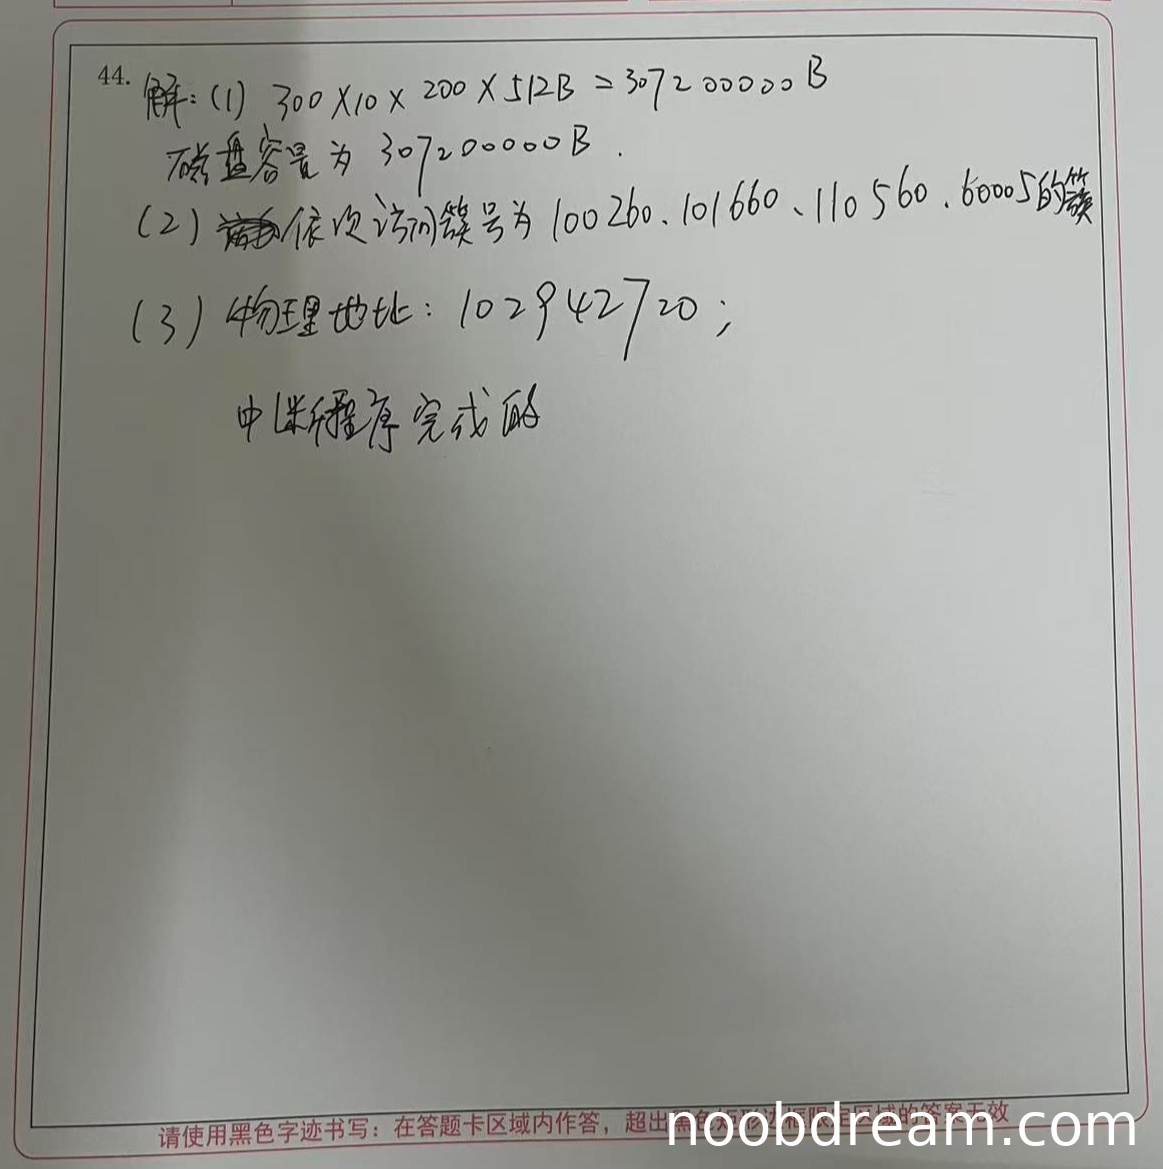 44. 解：(1) 300×10×200×512B=307200000B
磁盘容量为 307200000B.
(2) 依次访问簇号为 100260、101660、110560、60005的簇
(3) 物理地址：102942720；
中断程序完成的
请使用黑色字迹书写：在答题卡区域内作答，超出黑色矩形边框限定区域的答案无效
noobdream.com